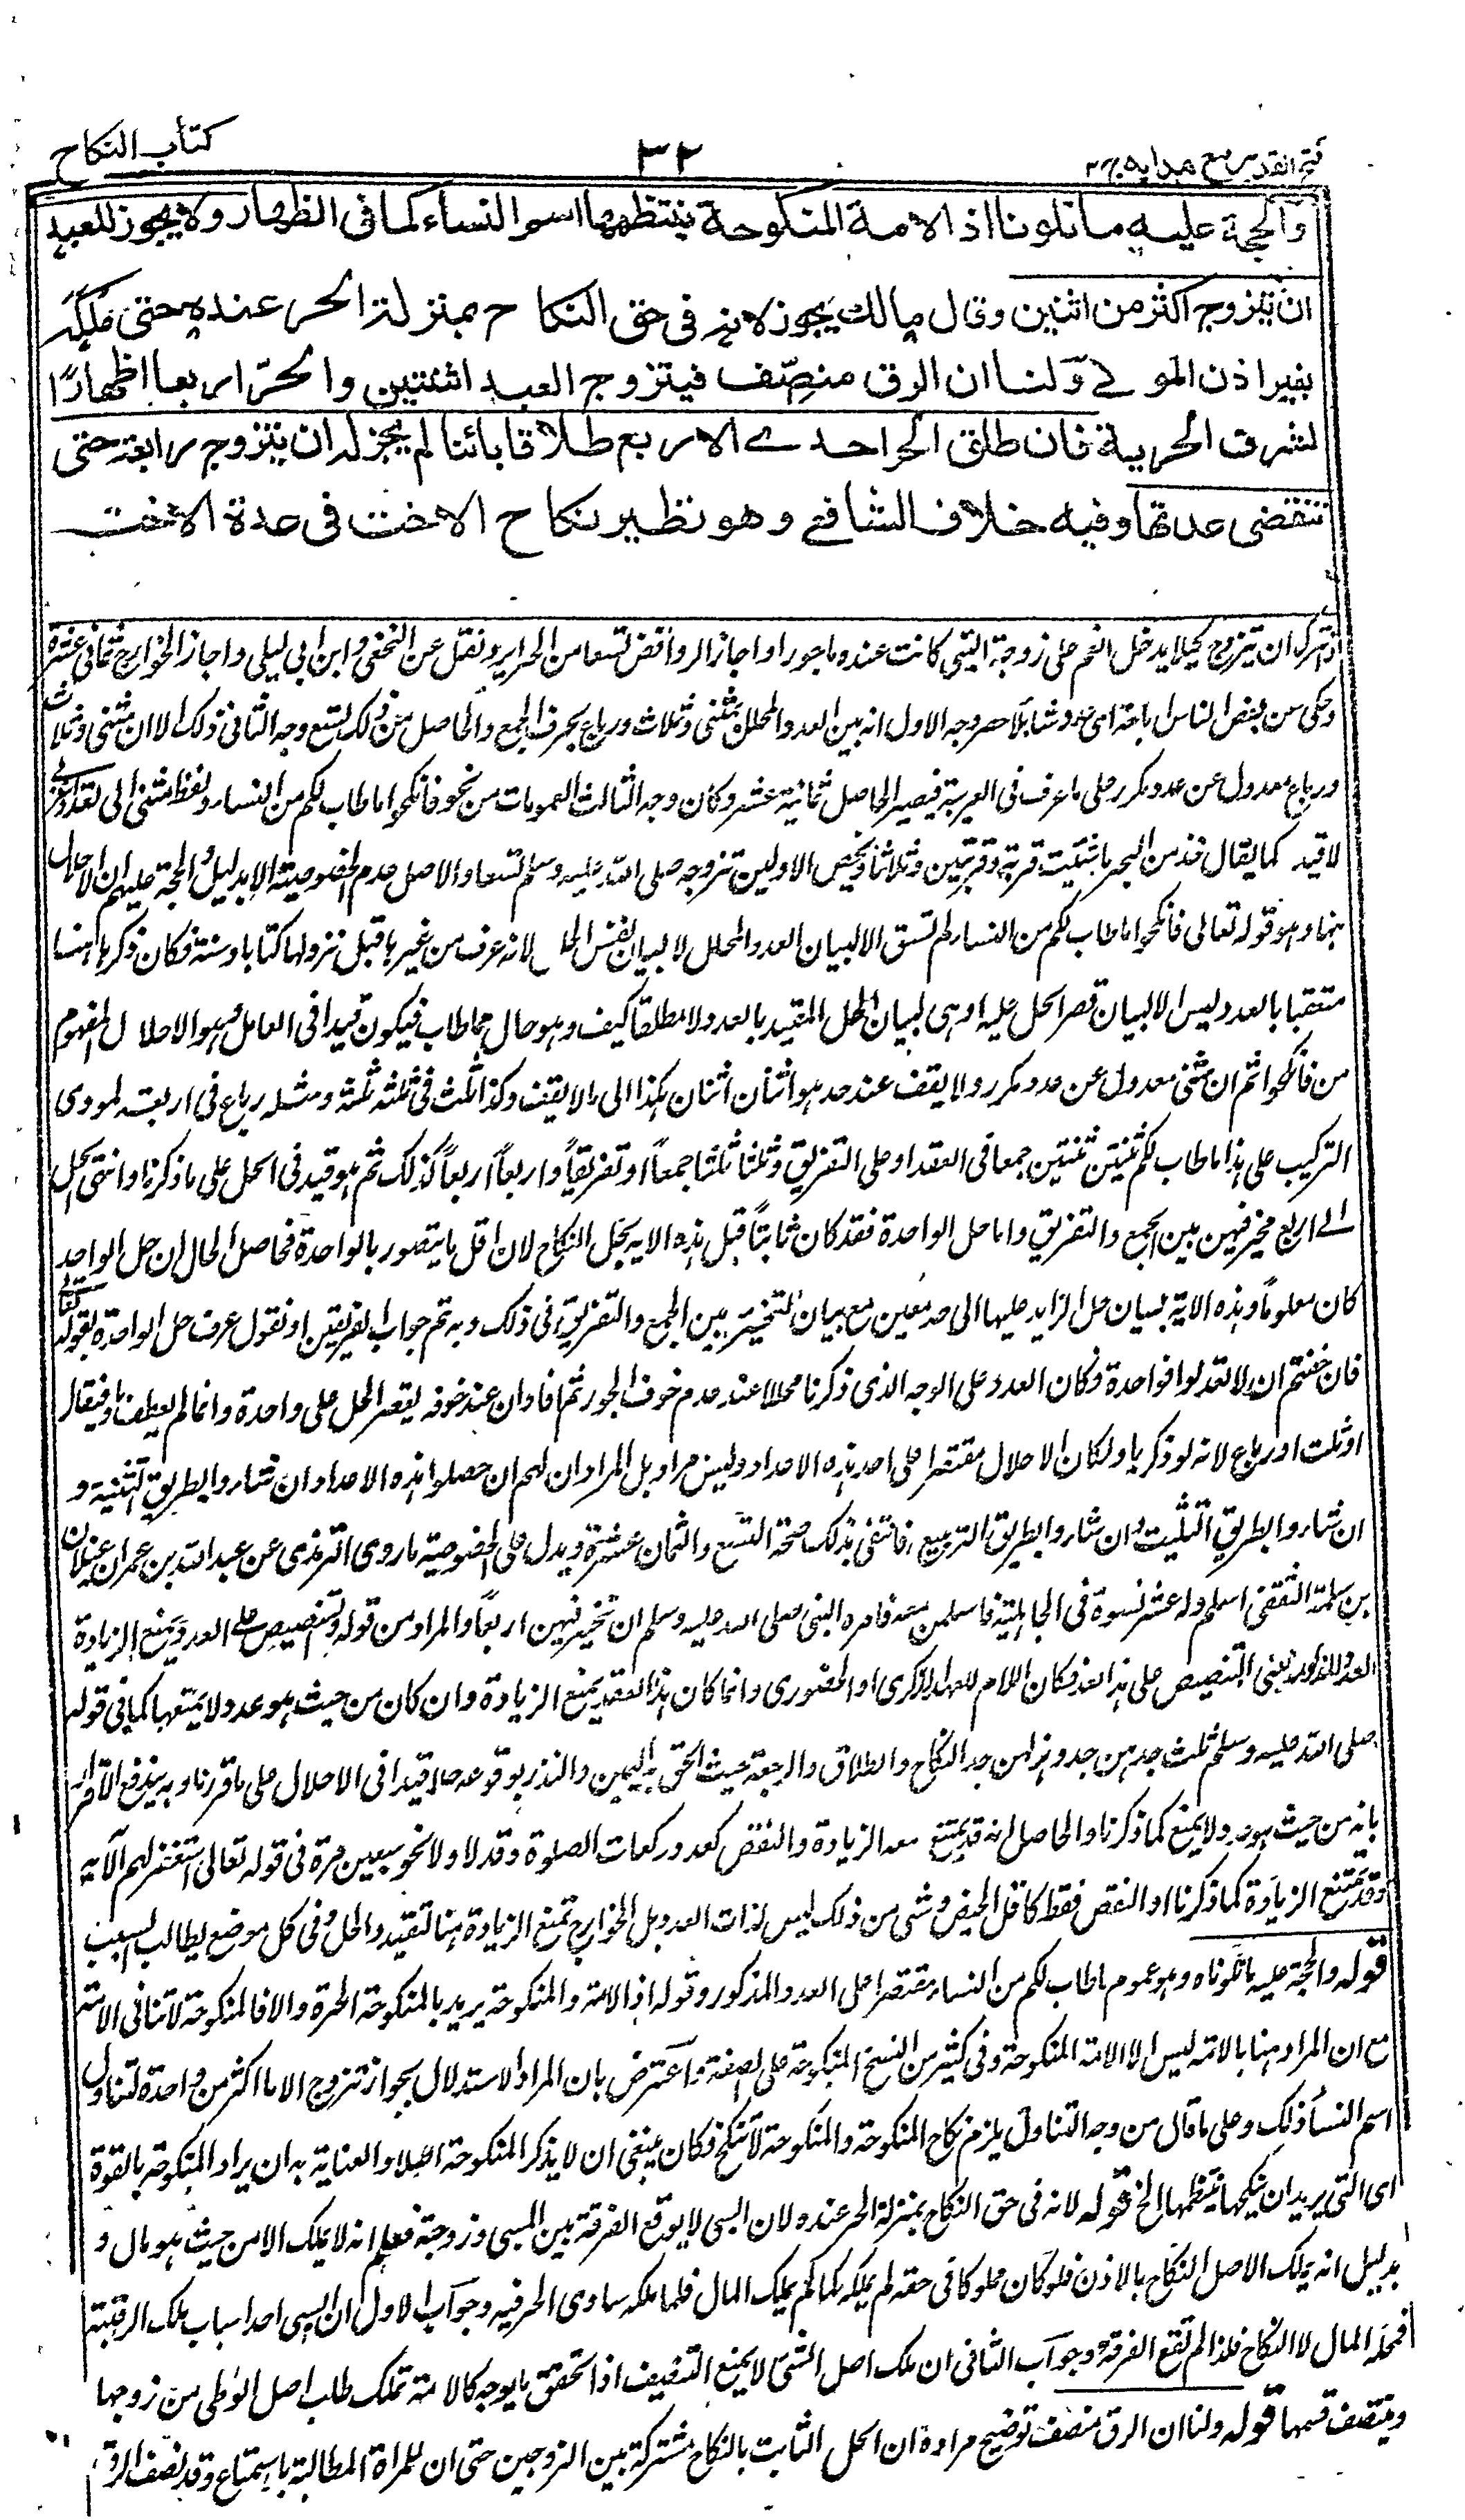 فتح القدير مع هدايه ج ٢
٣٢
كتاب النكاح
والحجة عليه ما تلونا اذ الامة المنكوحة ينتظمها اسم النساء كما فى الظهار ولا يجوز للعبد
ان يتزوج اكثر من اثنين وقال مالك يجوز لانه فى حق النكاح بمنزلة الحر عنده حتى ملكه
بغير اذن المولے ولنا ان الرق منصّف فيتزوج العبد اثنتين والحرّ اربعا اظهارًا
لشرف الحرية فان طلق الحر احدے الاربع طلاقا بائنا لم يجز له ان يتزوج رابعة حتى
تنقضى عدتها وفيه خلاف الشافعے وهو نظير نكاح الاخت فى عدة الاخت
ان يتزوج كيلا يدخل الغم على زوجة التى كانت عنده ماجورا واجاز الروافض تسعا من الحراير ونقل عن النخعى وابن ابى ليلى واجاز الخوارج ثمانى عشرة
وحكى عن بعض الناس اباحة اى عدد شاء بلا حصر وجه الاول انه بين العدد المحلل بمثنى وثلاث ورباع بحرف الجمع والحاصل من ذلك تسع وجه الثانى ذلك الا ان مثنى وثلاث
ورباع معدول عن عدد مكرر على ما عرف فى العربية فيصير الحاصل ثمانية عشر وكان وجه الثالث العمومات من نحو فانكحوا ما طاب لكم من النساء ولفظ مثنى الى
لا قيد كما يقال خذ من البحر ما شئت قربة وقربتين وثلاثا ويخص الاولين تزوجه صلى الله عليه وسلم تسعا والاصل عدم الخصوصية الا بدليل والحجة عليهم ان الاحلال
ههنا وهو قوله تعالى فانكحوا ما طاب لكم من النساء لم تسق الا لبيان العدد المحلل لا لبيان نفس الحل لانه عرف من غيرها قبل نزولها كتابا وسنة فكان ذكرها هنا
متعقبا بالعدد ليس الا لبيان قصر الحل عليه او هى لبيان الحل المقيد بالعدد لا مطلقا كيف وهو حال مما طاب فيكون قيدا فى العامل وهو الاحلال المفهوم
من فانكحوا ثم ان مثنى معدول عن عدد مكرر ولا يقف عند حد هو اثنان اثنان هكذا الى ما لا يقف وكذا ثلث فى ثلثة ثلثة ومثله رباع فى اربعة لمودى
التركيب على هذا ما طاب لكم ثنتين ثنتين جمعا فى العقد او على التفريق وثلثا ثلثا جمعاً او تفريقاً واربعاً اربعاً كذلك ثم هو قيد فى الحل على ما ذكرنا وانتهى الحل
الے اربع مخير فيهن بين الجمع والتفريق واما حل الواحدة فقد كان ثابتاً قبل هذه الاية بحل النكاح لان اقل ما يتصور بالواحدة فحاصل الحال ان حل الواحدة
كان معلوماً وهذه الاية لبيان حل الزايد عليها الى حد معين مع بيان التخيير بين الجمع والتفريق فى ذلك وبه تم جواب الفريقين او نقول عرف حل الواحدة بقوله تعالے
فان خفتم ان لا تعدلوا فواحدة فكان العدد على الوجه الذى ذكرنا محللا عند عدم خوف الجور ثم افاد ان عند خوفه يقصر الحل على واحدة وانما لم يعطف باو فيقال
او ثلث او رباع لانه لو ذكر باو لكان الاحلال مقتصرا على احد هذه الاعداد وليس مرادا بل المراد ان لهم ان حصلوا هذه الاعداد ان شاءوا بطريق التثنية و
ان شاءوا بطريق التثليث وان شاءوا بطريق التربيع فانتفى بذلك صحة التسع والثمان عشرة ويدل على الخصوصية ما روى الترمذى عن عبد الله بن عمر ان غيلان
بن سلمة الثقفى اسلم وله عشر نسوة فى الجاهلية فاسلمن معه فامره النبى صلى الله عليه وسلم ان تخير منهن اربعاً والمراد من قوله والتنصيص على العدد يمنع الزيادة
العدد المذكور يعنى التنصيص على هذا العدد فكان اللام للعهد الذكرى او الحضورى وانما كان هذا العقد يمنع الزيادة وان كان من حيث هو عدد لا يمنعها كما فى قوله
صلى الله عليه وسلم ثلث جدهن جد وهزلهن جد النكاح والطلاق والرجعة حيث الحق به اليمين والنذر لوقوعه حالا قيدا فى الاحلال على ما قررنا وبه يندفع
بانه من حيث هو عدد لا يمنع كما ذكرنا والحاصل انه قد يمتنع معه الزيادة والنقص كعدد ركعات الصلوة وقد لا ولا نحو سبعين مرة فى قوله تعالى استغفر لهم الآية
وقد تمتنع الزيادة كما ذكرنا او النقص فقط كاقل الحيض وشى من ذلك ليس لذات العدد بل الخوارج تمنع الزيادة هنا لتقييد الحل وفى كل موضع يطالب السبب
قوله والحجة عليه ما تلوناه وهو عموم ما طاب لكم من النساء مقتصرا على العدد المذكور وقوله اذ الامة والمنكوحة يريد بالمنكوحة الحرة والا فالمنكوحة لا تنافى الامة
مع ان المراد هنا بالامة ليس الا الامة المنكوحة وفى كثير من النسخ المنكوحة على الصفة واعترض بان المراد الاستدلال بجواز تزوج الاما اكثر من واحدة لتناول
اسم النساء ذلك وعلى ما قال من وجه التناول يلزم نكاح المنكوحة والمنكوحة لا تنكح فكان ينبغى ان لا يذكر المنكوحة اصلا والعناية به ان يراد المنكوحة بالقوة
اى التى يريد ان ينكحها ينتظمها الخ قوله لانه فى حق النكاح بمنزلة الحر عنده لان السبى لا يوقع الفرقة بين المسبى وزوجته فعلم انه لا يملك الا من حيث هو مال و
بدليل انه يملك الاصل النكاح بالاذن فلو كان مملوكا فى حقه لم يملكه كما لم يملك المال فلما ملكه ساوى الحر فيه وجواب الاول ان السبى احد اسباب ملك الرقبة
فمحله المال لا النكاح فلذا لم تقع الفرقة وجواب الثانى ان ملك اصل الشئ لا يمنع التنصيف اذا تحقق ما يوجبه كالامة تملك طلب اصل الوطى من زوجها
وينتصف قسمها قوله ولنا ان الرق منصف توضيح مراده ان الحل الثابت بالنكاح مشترك بين الزوجين حتى ان للمراة المطالبة باستمتاع وقد نصف الرق